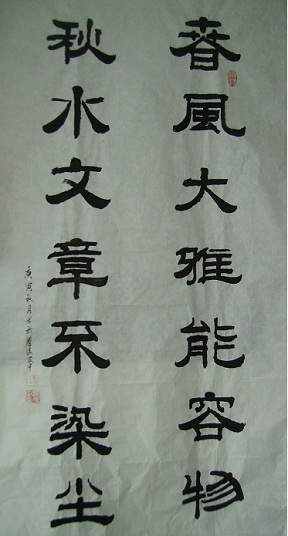 春風大雅能容物
秋水文章不染尘
庚寅秋月